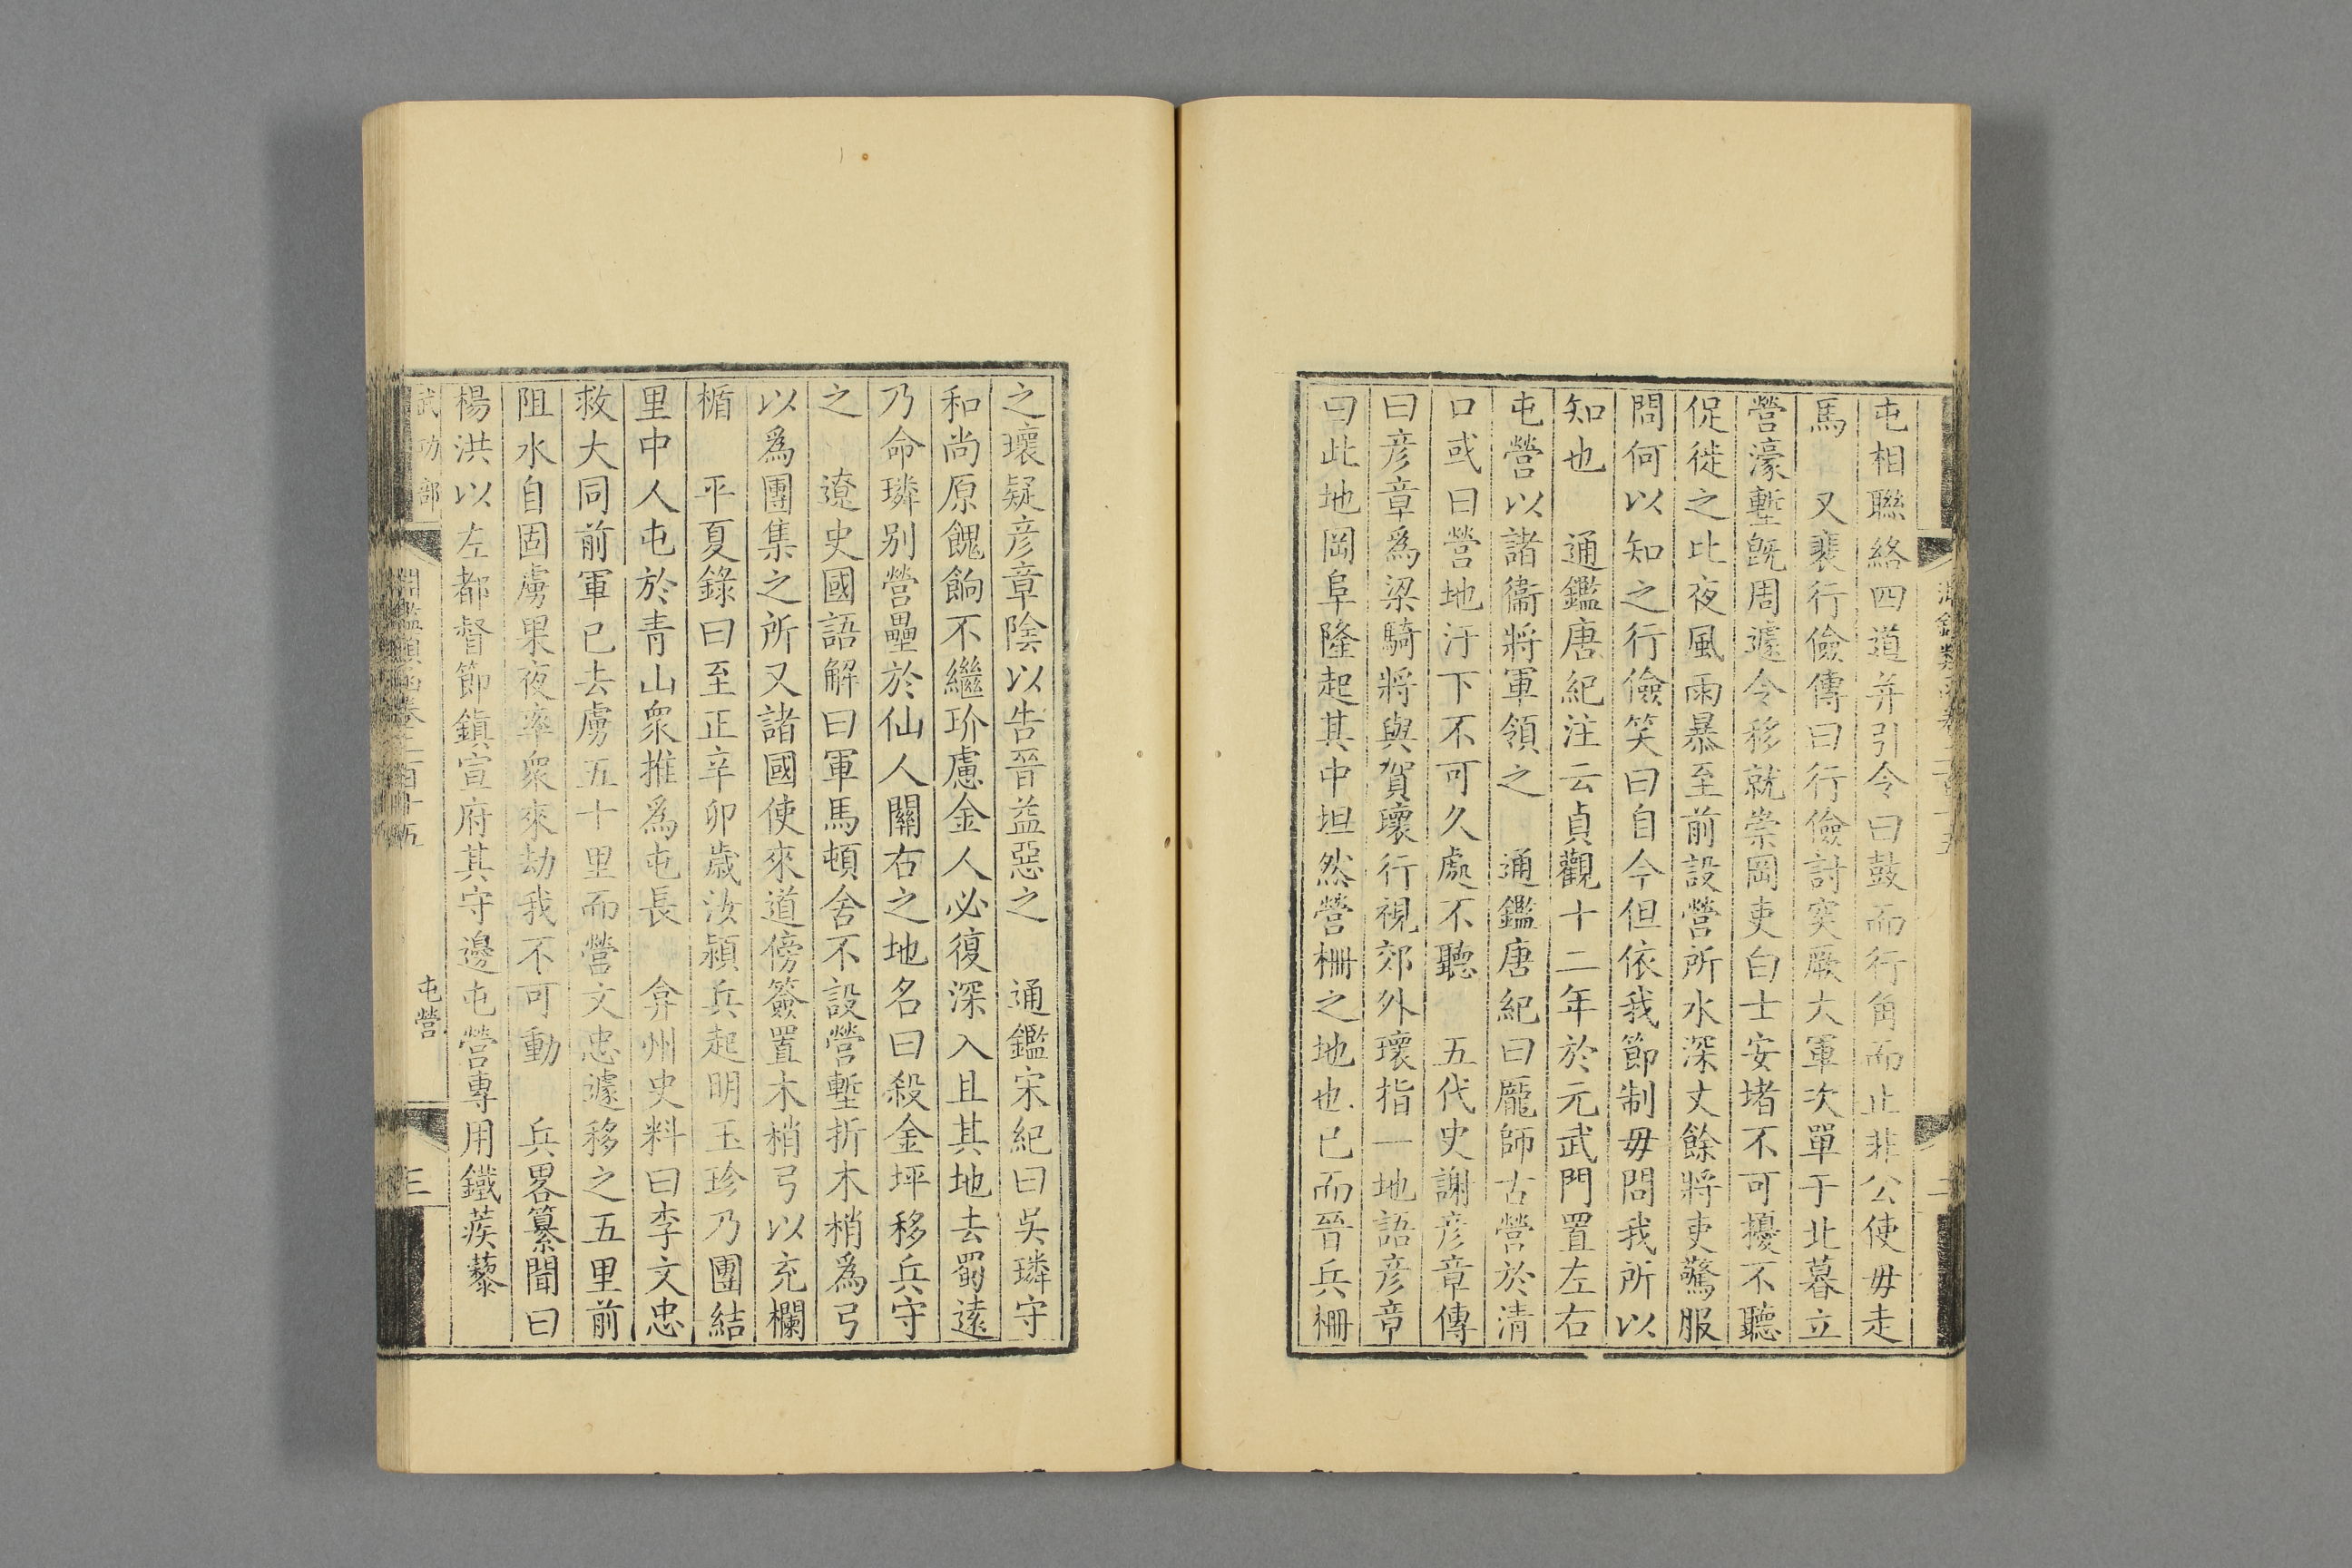 屯相聯絡四道并引令曰鼓而行角而止非公使毋走
馬　又裴行儉傳曰行儉討突厥大軍次單于北暮立
營濠塹旣周遽令移就崇岡吏白士安堵不可擾不聽
促徙之比夜風雨暴至前設營所水深丈餘將吏驚服
問何以知之行儉笑曰自今但依我節制毋問我所以
知也　通鑑唐紀注云貞觀十二年於元武門置左右
屯營以諸衞將軍領之　通鑑唐紀曰龐師古營於清
口或曰營地汙下不可久處不聽　五代史謝彦章傳
曰彦章爲梁騎將與賀瓌行視郊外瓌指一地語彦章
曰此地岡阜隆起其中坦然營栅之地也已而晉兵栅
之瓌疑彦章陰以告晉益惡之　通鑑宋紀曰吳璘守
和尚原餽餉不繼玠慮金人必復深入且其地去蜀遠
乃命璘别營壘於仙人關右之地名曰殺金坪移兵守
之　遼史國語解曰軍馬頓舍不設營塹折木梢爲弓
以爲團集之所又諸國使來道傍簽置木梢弓以充欄
楯　平夏錄曰至正辛卯歲汝潁兵起明玉珍乃團結
里中人屯於青山衆推爲屯長　弇州史料曰李文忠
救大同前軍已去虜五十里而營文忠遽移之五里前
阻水自固虜果夜率衆來劫我不可動　兵畧纂聞曰
楊洪以左都督節鎮宣府其守邊屯營專用鐵蒺藜
武功部　淵鑑類函卷二百十五　屯營　三